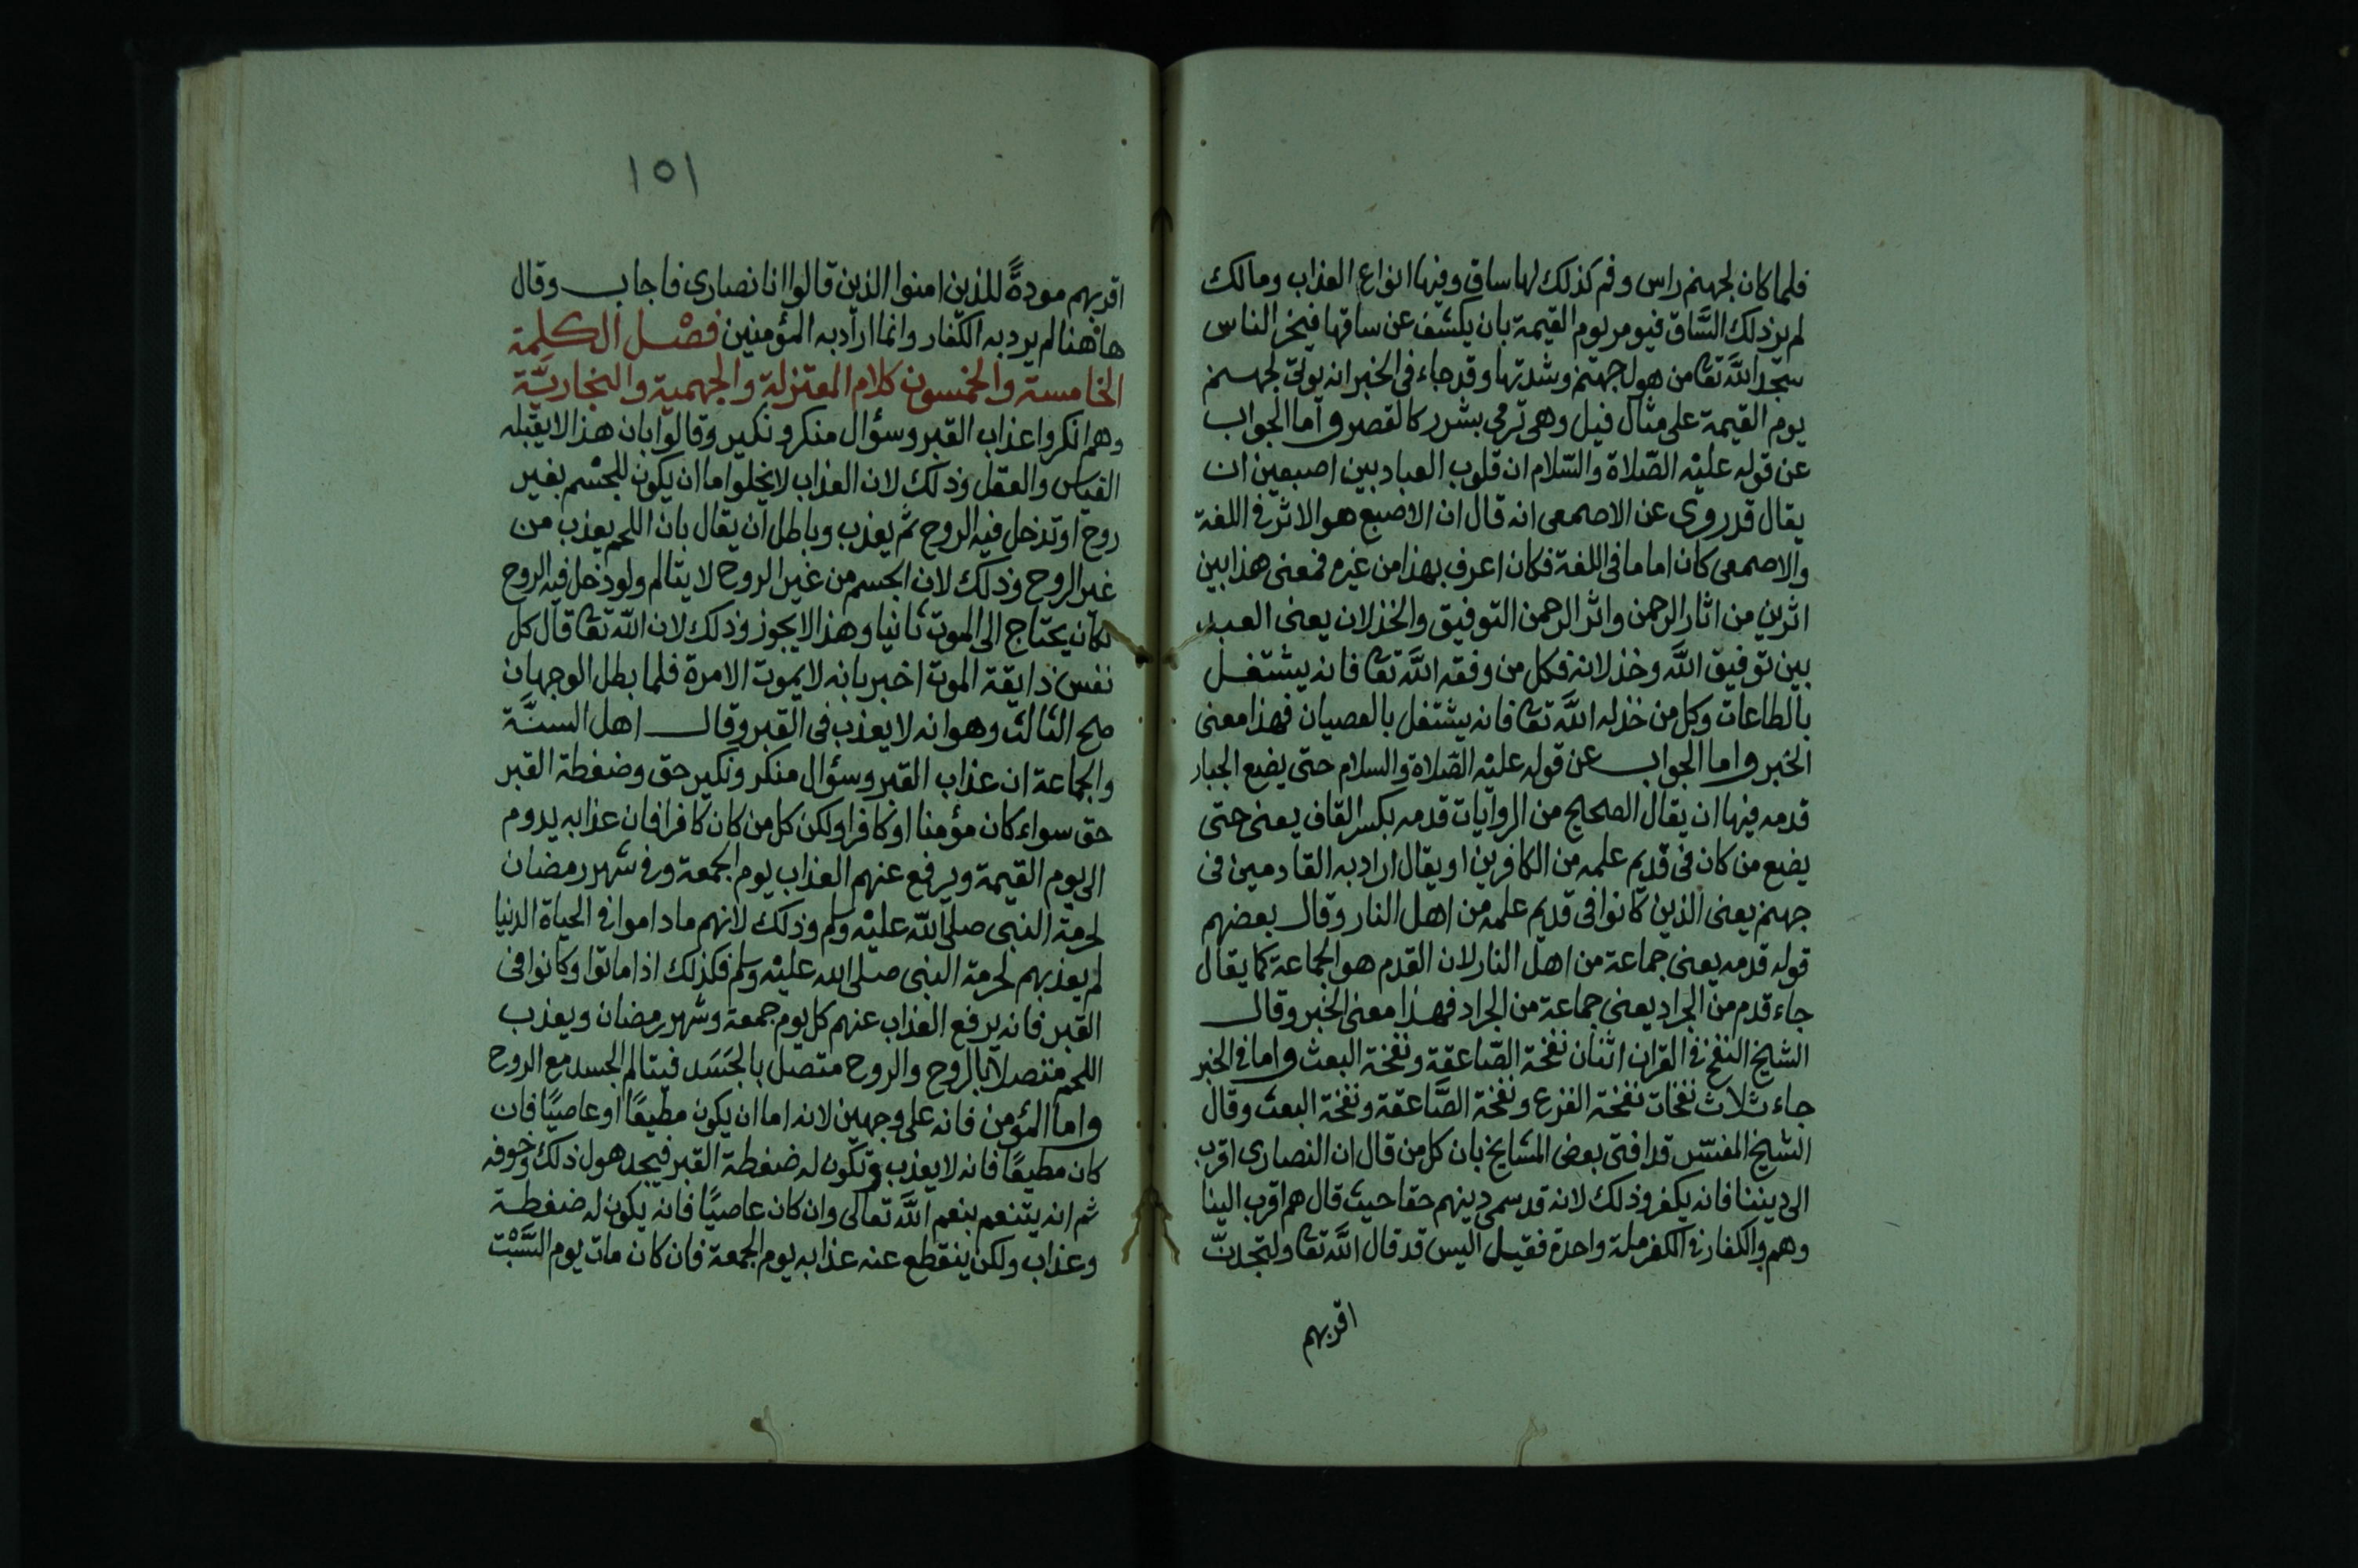 فلما كان لجهنم راس وفم كذلك لها ساق وفيها انواع العذاب ومالك
لم ير ذلك السَّاق فيومر يوم القيمة بان يكشف عن ساقها فيخر الناس
سجد اللَّه تعا من هول جهنم وشدتها وقد جاء فى الخبر انه يوتى لجهنم
يوم القيمة على مثال فيل وهى ترمى بشرر كالقصر واما الجواب
عن قوله عليْه الصّلاة والسّلام ان قلوب العباد بين اصبعين ان
يقال قد روى عن الاصمعى انه قال ان الاصبع هو الاثر فى اللغة
والاصمعى كان اماما فى اللغة فكان اعرف بهذا من غيره فمعنى هذا بين
اثرين من اثار الرحمن واثر الرحمن التوفيق والخذلان يعنى العبد
بين توفيق اللَّه وخذلانه فكل من وفقه اللَّه تعا فانه يشتغل
بالطاعات وكل من خذله اللَّه تعا فانه يشتغل بالعصيان فهذا معنى
الخبر واما الجواب عن قوله عليْه الصّلاة والسلام حتى يضع الجبار
قدمه فيها ان يقال الصحيح من الروايات قدمه بكسر القاف يعنى حتى
يضع من كان فى قديم علمه من الكافرين او يقال اراد به القادمين فى
جهنم يعنى الذين كانوا فى قديم علمه من اهل النار وقال بعضهم
قوله قدمه يعنى جماعة من اهل النار لان القدم هو الجماعة كما يقال
جاء قدم من الجراد يعنى جماعة من الجراد فهذا معنى الخبر وقال
الشيخ النفخ فى القران اثنان نفخة الصّاعقة ونفخة البعث واما فى الخبر
جاء ثلاث نفخات نفخة الفزع ونفخة الصَّاعقة ونفخة البعث وقال
الشيخ المفسّر قد افتى بعض المشايخ بان كل من قال ان النصارى اقرب
الى ديننا فانه يكفر وذلك لانه قد سمى دينهم حقا حيث قال هم اقرب الينا
وهم والكفار فى الكفر ملة واحدة فقيل اليس قد قال اللَّه تعا ولتجدنّ
اقربهم
١٥١
اقربهم مودةً للذين امنوا الذين قالوا انا نصارى فاجاب وقال
هاهنا لم يرد به الكفار وانما اراد به المؤمنين فصْل الكلمة
الخامسة والخمسون كلام المعتزلة والجهمية والنجاريَّة
وهم انكروا عذاب القبر وسؤال منكر ونكير وقالوا بان هذا لا يقبله
القياس والعقل وذلك لان العذاب لا يخلوا اما ان يكون للجسْم بغير
روح او تدخل فيه الروح ثم يعذب وباطل ان يقال بان اللحم يعذب من
غير الروح وذلك لان الجسم من غير الروح لا يتالم ولو دخل فيه الروح
لكان يحتاج الى الموت ثانيا وهذا لا يجوز وذلك لان اللّه تعا قال كل
نفس ذايقة الموت اخبر بانه لا يموت الا مرة فلما بطل الوجهان
صح الثالث وهو انه لا يعذب فى القبر وقال اهل السنَّة
والجماعة ان عذاب القبر وسؤال منكر ونكير حق وضغطة القبر
حق سواء كان مؤمنا او كافرا ولكن كل من كان كافرا فان عذابه يدوم
الى يوم القيمة ويرفع عنهم العذاب يوم الجمعة وفى شهر رمضان
لحرمة النبى صلى اللّه عليْه وسلم وذلك لانهم ما داموا فى الحياة الدنيا
لم يعذبهم لحرمة النبى صلى الله عليْه وسلم فكذلك اذا ماتوا وكانوا فى
القبر فانه يرفع العذاب عنهم كل يوم جمعة وشهر رمضان ويعذب
اللحم متصلا بالرّوح والروح متصل بالجَسَد فيتالم الجسد مع الروح
واما المؤمن فانه على وجهين لانه اما ان يكون مطيعًا او عاصيًا فان
كان مطيعًا فانه لا يعذب وتكون له ضغطة القبر فيجد هول ذلك وخوفه
ثم انه يتنعم بنعم اللَّه تعالى وان كان عاصيًا فانه يكون له ضغطة
وعذاب ولكن ينقطع عنه عذابه يوم الجمعة فان كان مات يوم السَّبْت